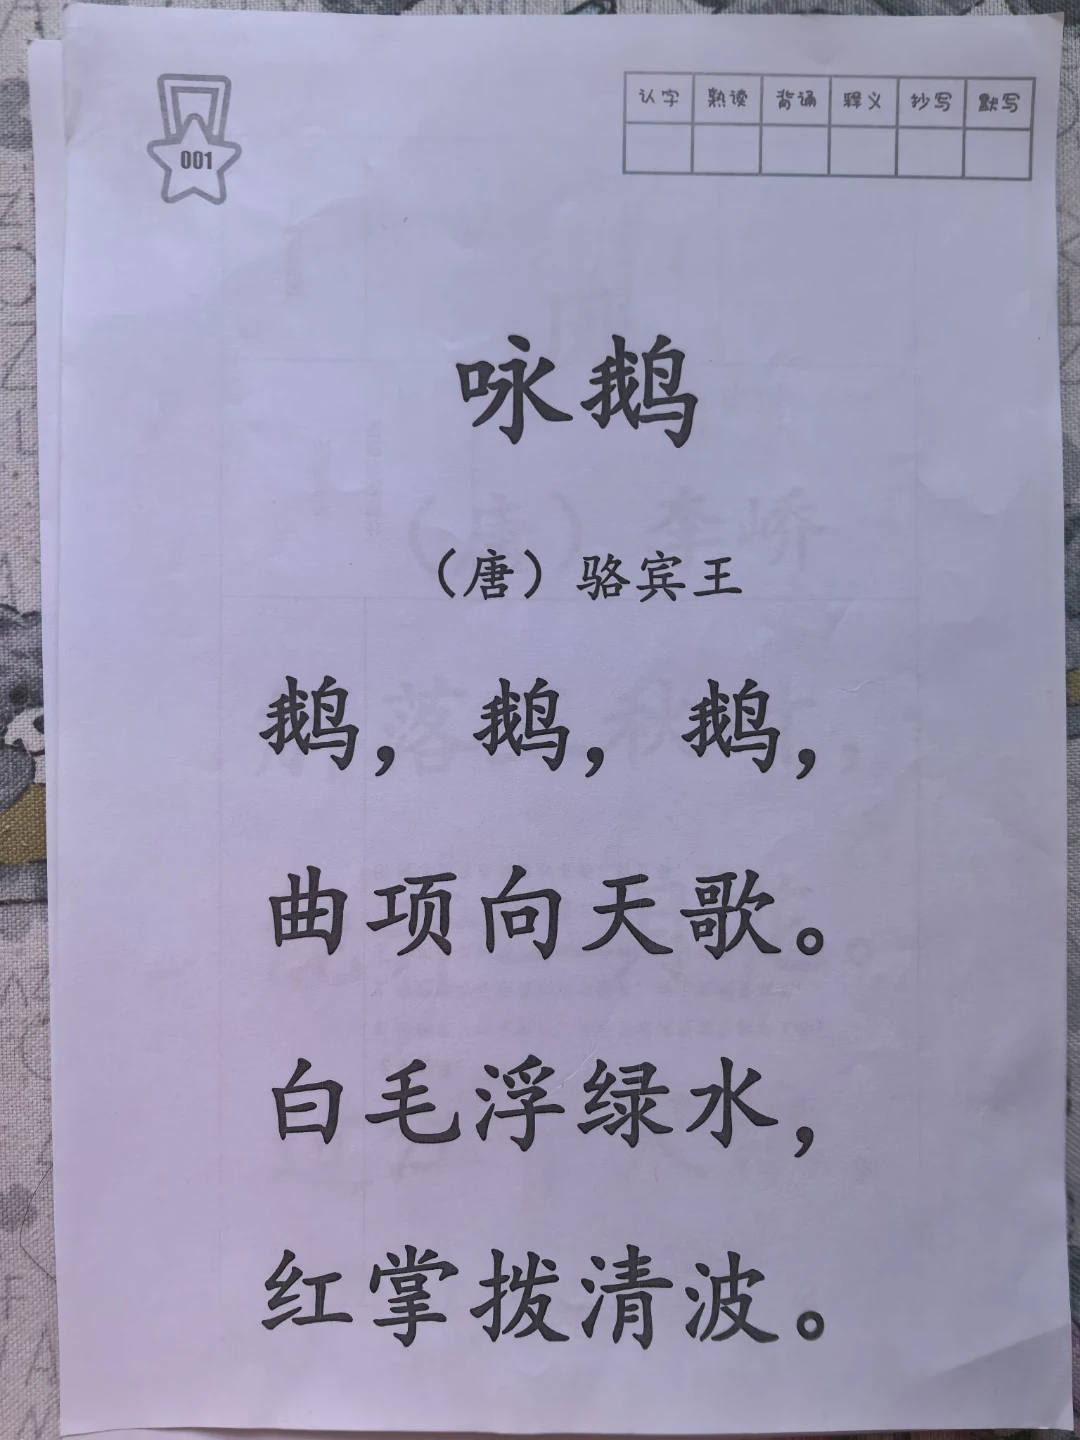 001
认字 熟读 背诵 释义 抄写 默写
咏鹅
（唐）骆宾王
鹅，鹅，鹅，
曲项向天歌。
白毛浮绿水，
红掌拨清波。